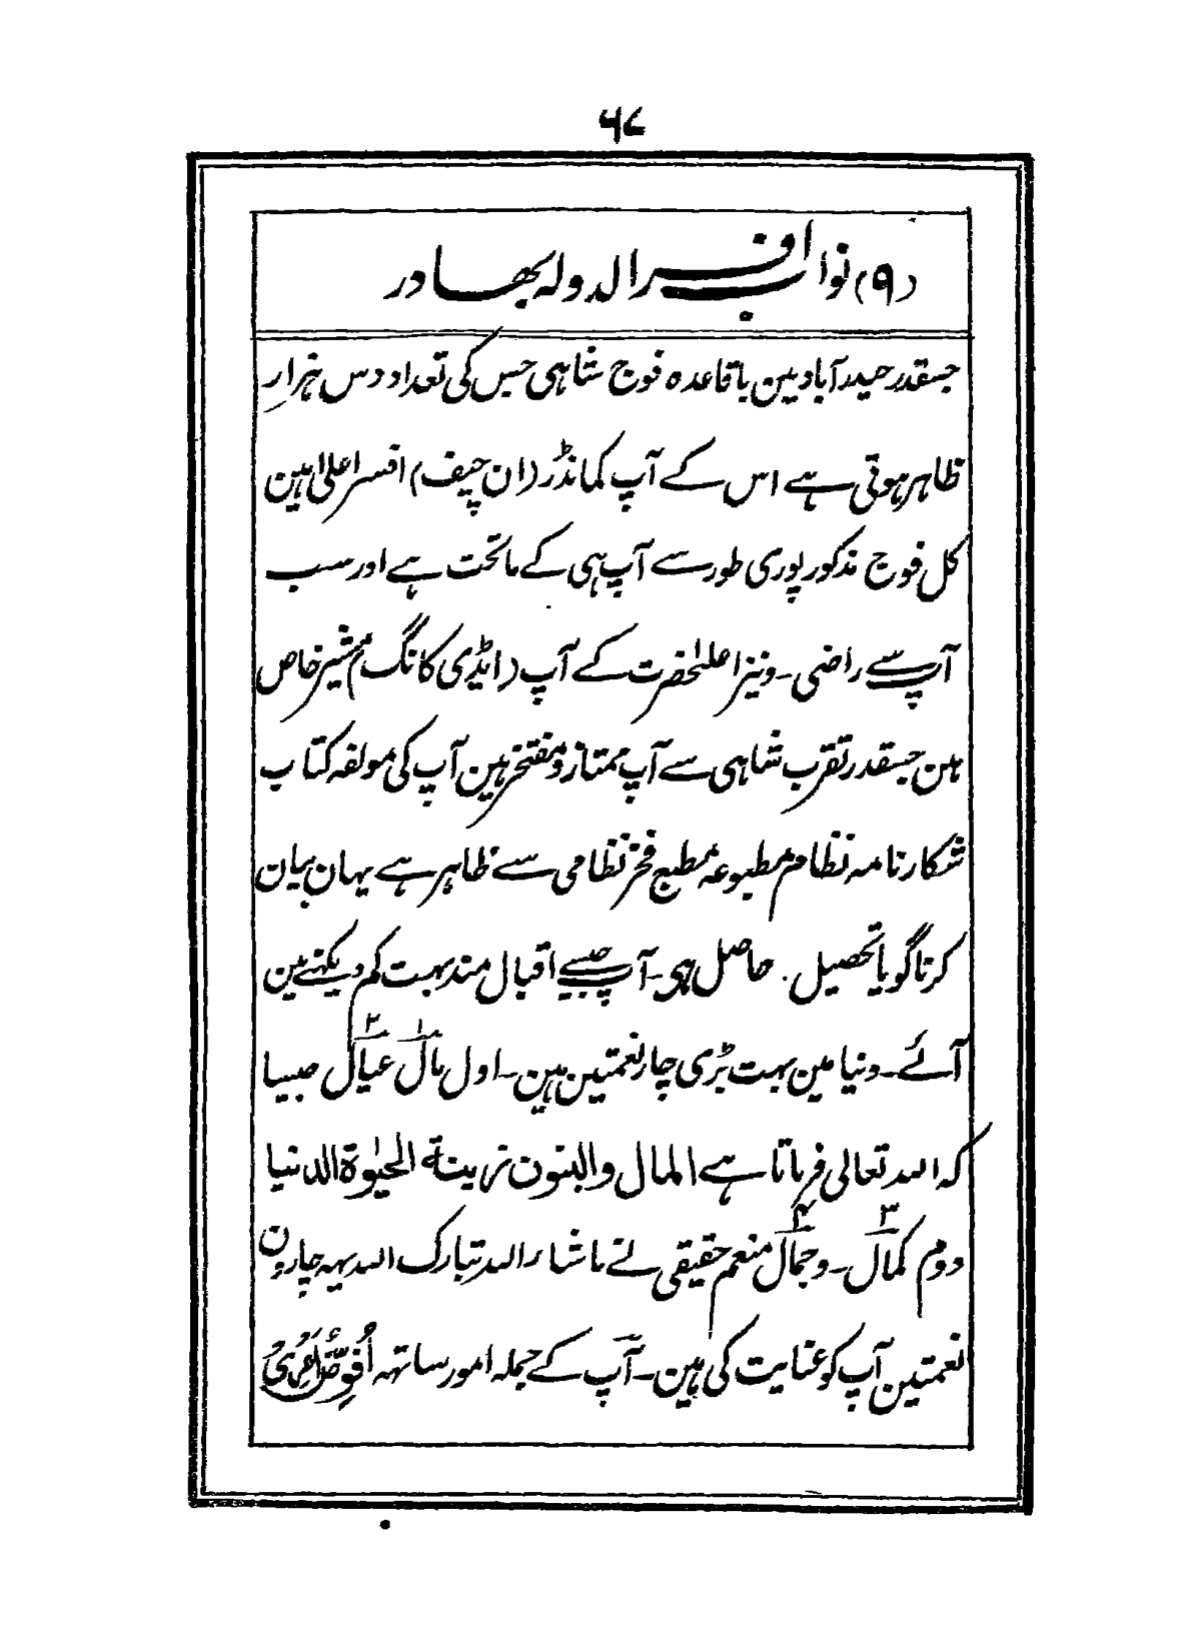 ۶۷
(۹) نواب افسر الدولہ بھادر
جسقدر حیدرآباد مین باقاعدہ فوج شاہی جس کی تعداد دس ہزار
ظاہر ہوتی ہے اس کے آپ کمانڈر (ان چیف) افسر اعلیٰ ہین
کل فوج مذکور پوری طور سے آپ ہی کے ماتحت ہے اور سب
آپ سے راضی۔ ونیز اعلیٰحضرت کے آپ (ایڈی کانگ) مشیر خاص
ہین جسقدر تقرب شاہی سے آپ ممتاز و مفتخر ہین آپ کی مولفہ کتاب
شکار نامہ نظام مطبوعہ مطبع فخر نظامی سے ظاہر ہے یہان بیان
کرنا گویا تحصیل حاصل ہی۔ آپ جیسے اقبال مند بہت کم دیکہنے مین
آئے۔ دنیا مین بہت بڑی چار نعمتین ہین۔ اول مال۱ عیال۲ جیسا
کہ اللہ تعالی فرماتا ہے المال والبنون زینۃ الحیٰوۃ الدنیا
دوم کمال۳۔ وجمال۴ منعم حقیقی نے ماشاء اللہ تبارک اللہ یہہ چارون
نعمتین آپ کو عنایت کی ہین۔ آپ کے جملہ امور ساتہہ اُفَوِّضُ اَمْرِیْ